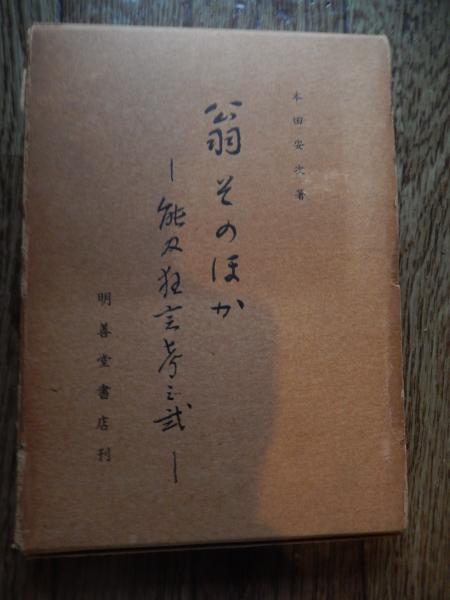 本田安次著
翁そのほか
―能及狂言考之弐―
明善堂書店刊